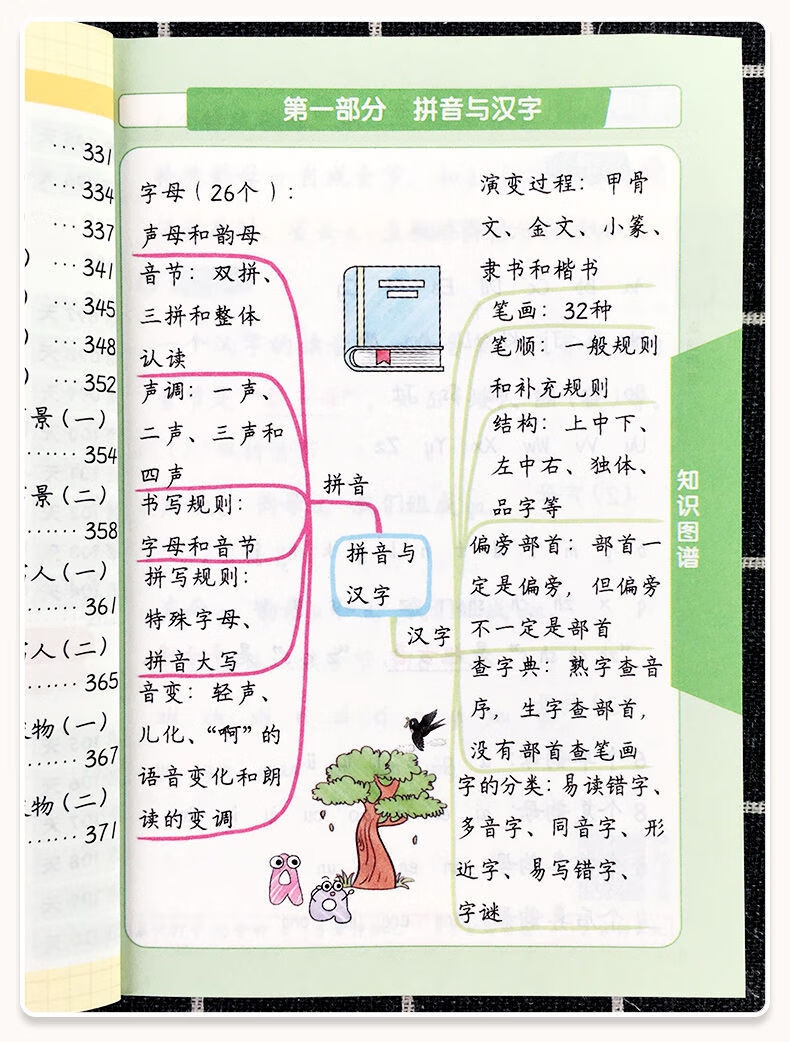 ··· 331
··· 334
··· 337
··· 341
··· 345
··· 348
··· 352
景（一）
··· 354
景（二）
··· 358
人（一）
······ 361
人（二）
······ 365
物（一）
······ 367
物（二）
······ 371
第一部分 拼音与汉字
字母（26个）：
声母和韵母
音节：双拼、
三拼和整体
认读
声调：一声、
二声、三声和
四声
书写规则：
字母和音节
拼写规则：
特殊字母、
拼音大写
音变：轻声、
儿化、“啊”的
语音变化和朗
读的变调
拼音
拼音与
汉字
汉字
演变过程：甲骨
文、金文、小篆、
隶书和楷书
笔画：32种
笔顺：一般规则
和补充规则
结构：上中下、
左中右、独体、
品字等
偏旁部首：部首一
定是偏旁，但偏旁
不一定是部首
查字典：熟字查音
序，生字查部首，
没有部首查笔画
字的分类：易读错字、
多音字、同音字、形
近字、易写错字、
字谜
知识图谱